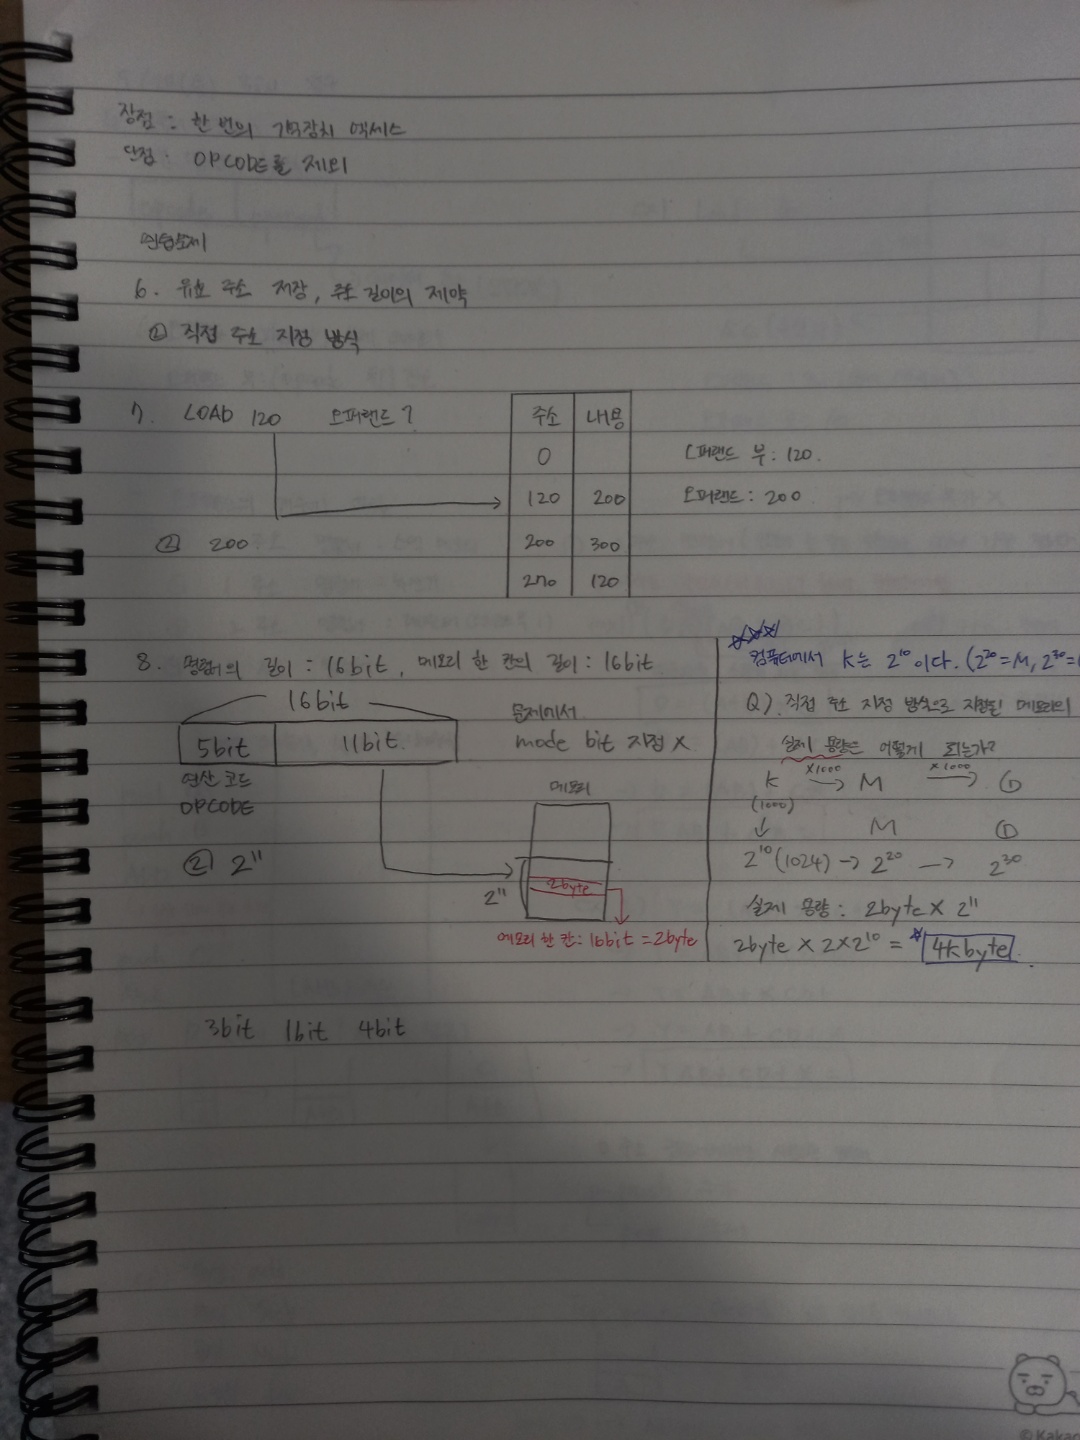 장점 : 한 번의 기억장치 엑세스
단점 : OPCODE를 제외
연습문제
6. 유효 주소 저장, 주소 길이의 제약
① 직접 주소 지정 방식
7. LOAD 120 오퍼랜드?
주소 내용
0
120 200
200 300
270 120
오퍼랜드 부 : 120.
오퍼랜드 : 200.
② 200.
8. 명령어의 길이 : 16bit, 메모리 한 칸의 길이 : 16bit
16bit
5bit 11bit.
연산 코드
OPCODE
문제에서
mode bit 지정 X
메모리
② 2¹¹
2¹¹
2byte
메모리 한 칸 : 16bit = 2byte
컴퓨터에서 K는 2¹⁰이다. (2²⁰=M, 2³⁰=
Q). 직접 주소 지정 방식으로 지정된 메모리의
실제 용량은 어떻게 되는가?
K ×1000 → M ×1000 → G
(1000)
↓ M G
2¹⁰(1024) → 2²⁰ → 2³⁰
실제 용량 : 2byte × 2¹¹
2byte × 2 × 2¹⁰ = 4kbyte.
3bit 1bit 4bit